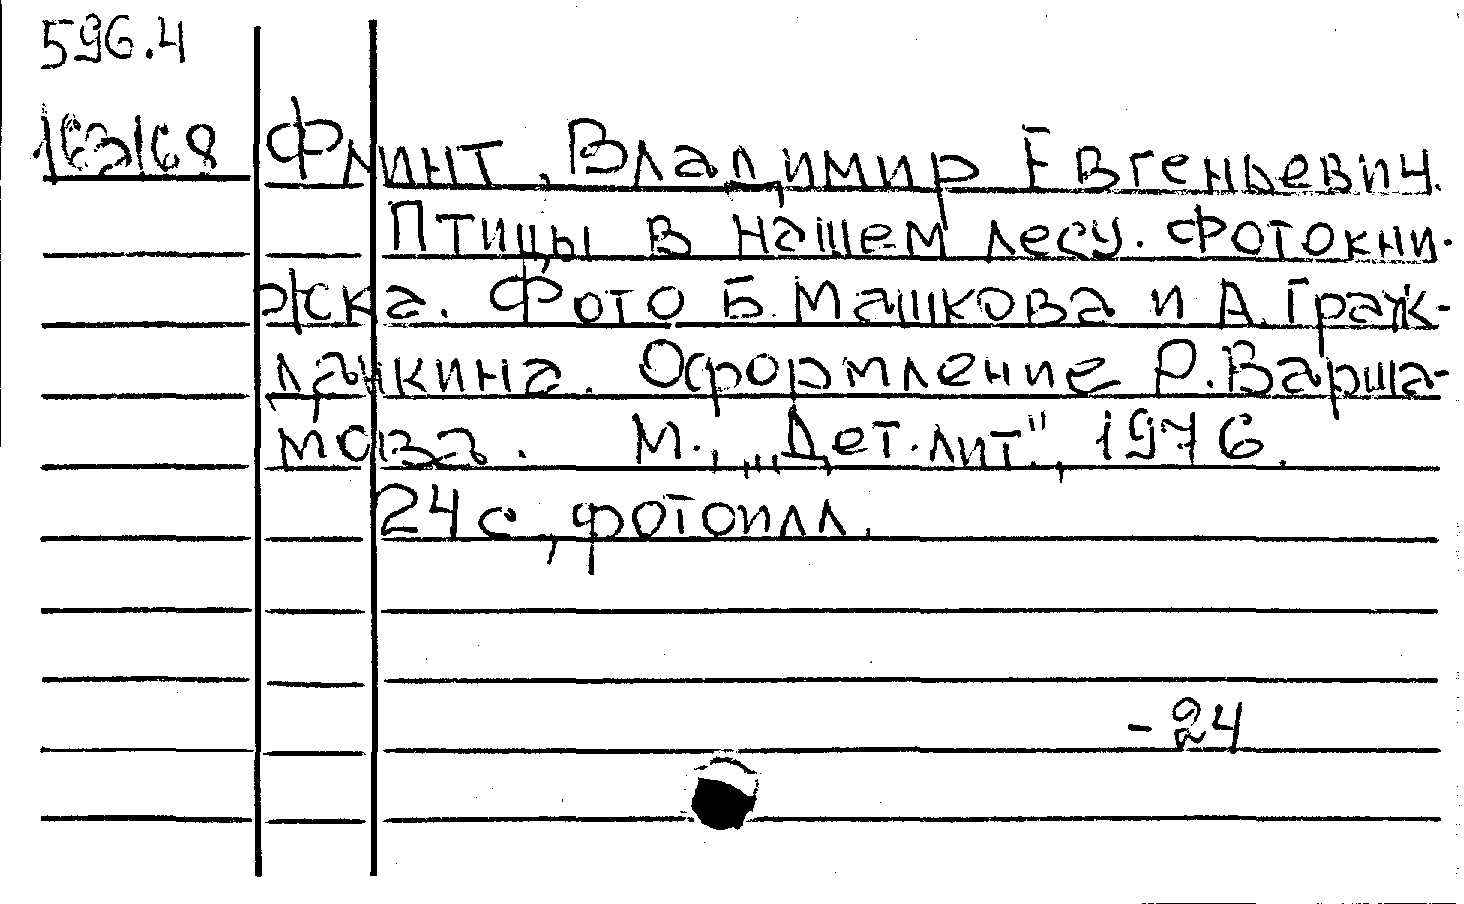 596.4
163168 Флинт, Владимир Евгеньевич.
Птицы в нашем лесу. Фотокни-
жка. Фото Б. Машкова и А. Граж-
данкина. Оформление Р. Варша-
мова. М., „Дет. лит.", 1976.
24 с, фотоилл.
-24